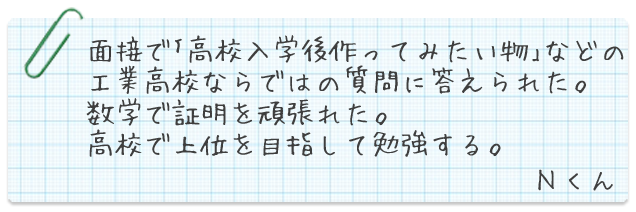 面接で「高校入学後作ってみたい物」などの
工業高校ならではの質問に答えられた。
数学で証明を頑張れた。
高校で上位を目指して勉強する。
Nくん